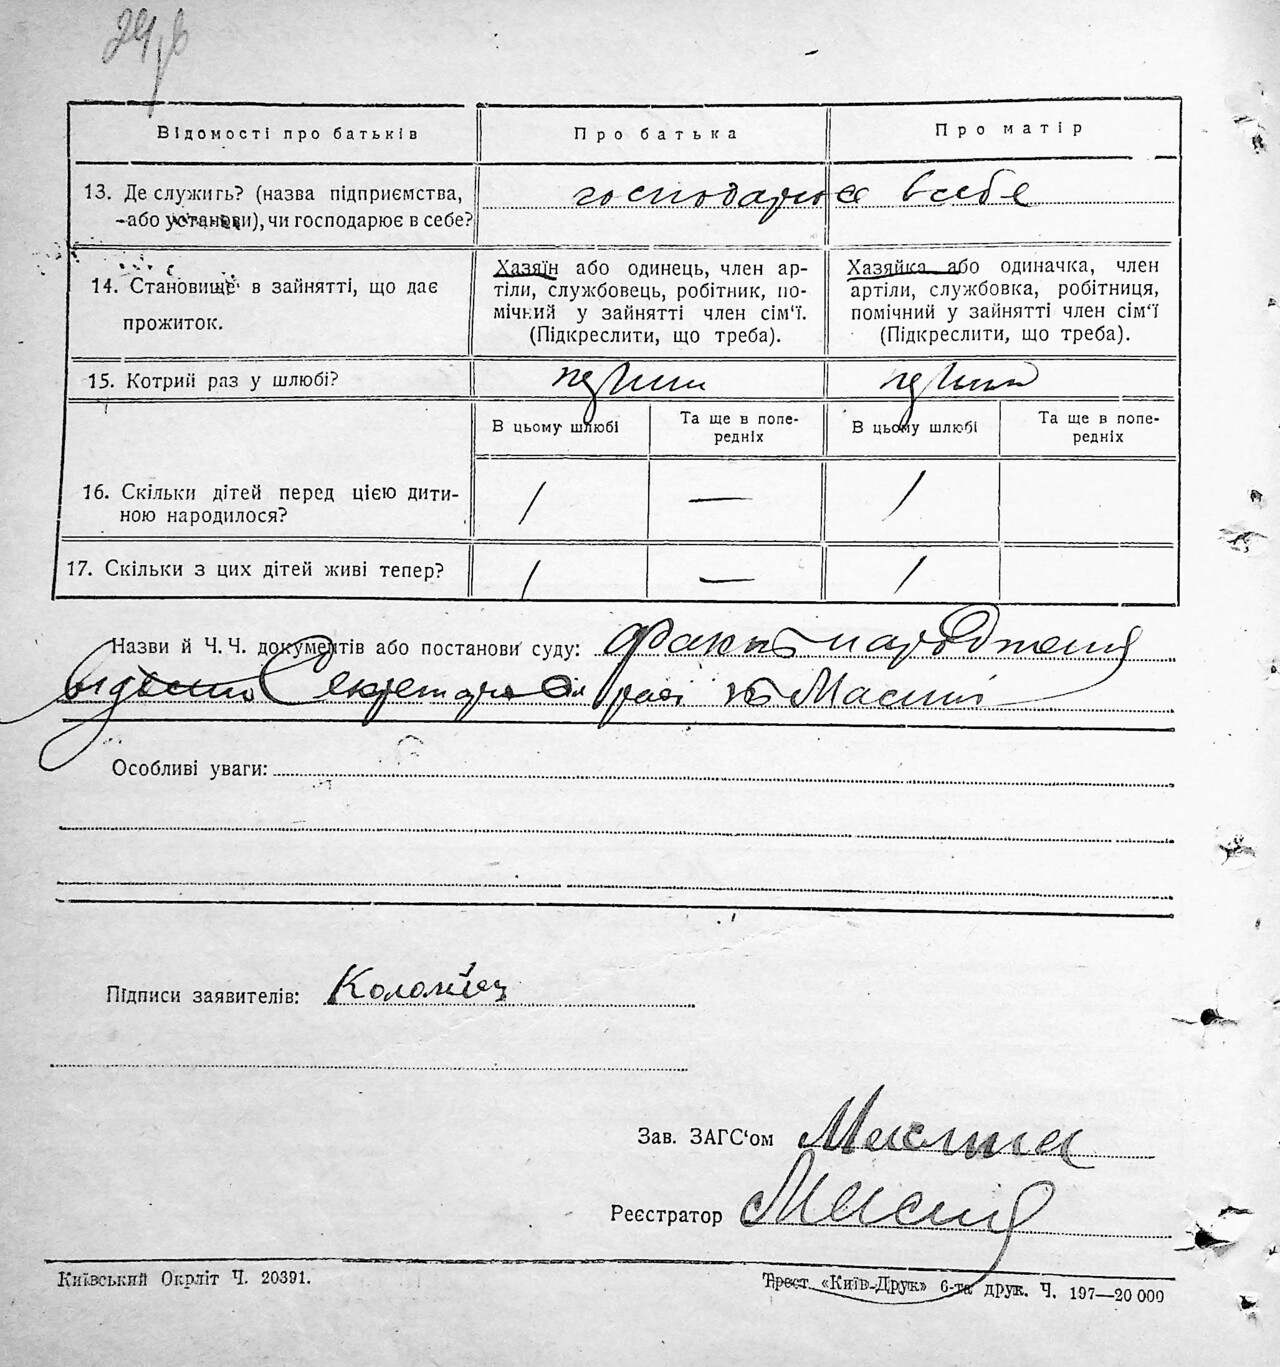 Відомості про батьків
Про батька
Про матір
13. Де служить? (назва підприємства,
або установи), чи господарює в себе?
господарює в себе
14. Становище в зайнятті, що дає
прожиток.
Хазяїн або одинець, член ар-
тіли, службовець, робітник, по-
мічний у зайнятті член сім‘ї.
(Підкреслити, що треба).
Хазяйка або одиначка, член
артіли, службовка, робітниця,
помічний у зайнятті член сім‘ї
(Підкреслити, що треба).
15. Котрий раз у шлюбі?
В цьому шлюбі
Та ще в попе-
редніх
В цьому шлюбі
Та ще в попе-
редніх
16. Скільки дітей перед цією дити-
ною народилося?
/ — /
17. Скільки з цих дітей живі тепер?
/ — /
Назви й Ч. Ч. документів або постанови суду: факт народження
Секретар раєі
Особливі уваги:
Підписи заявителів: Коломієц
Зав. ЗАГС‘ом
Реєстратор
Київський Окрліт Ч. 20391.
Трест «Київ-Друк» 6-та друк. Ч. 197—20 000